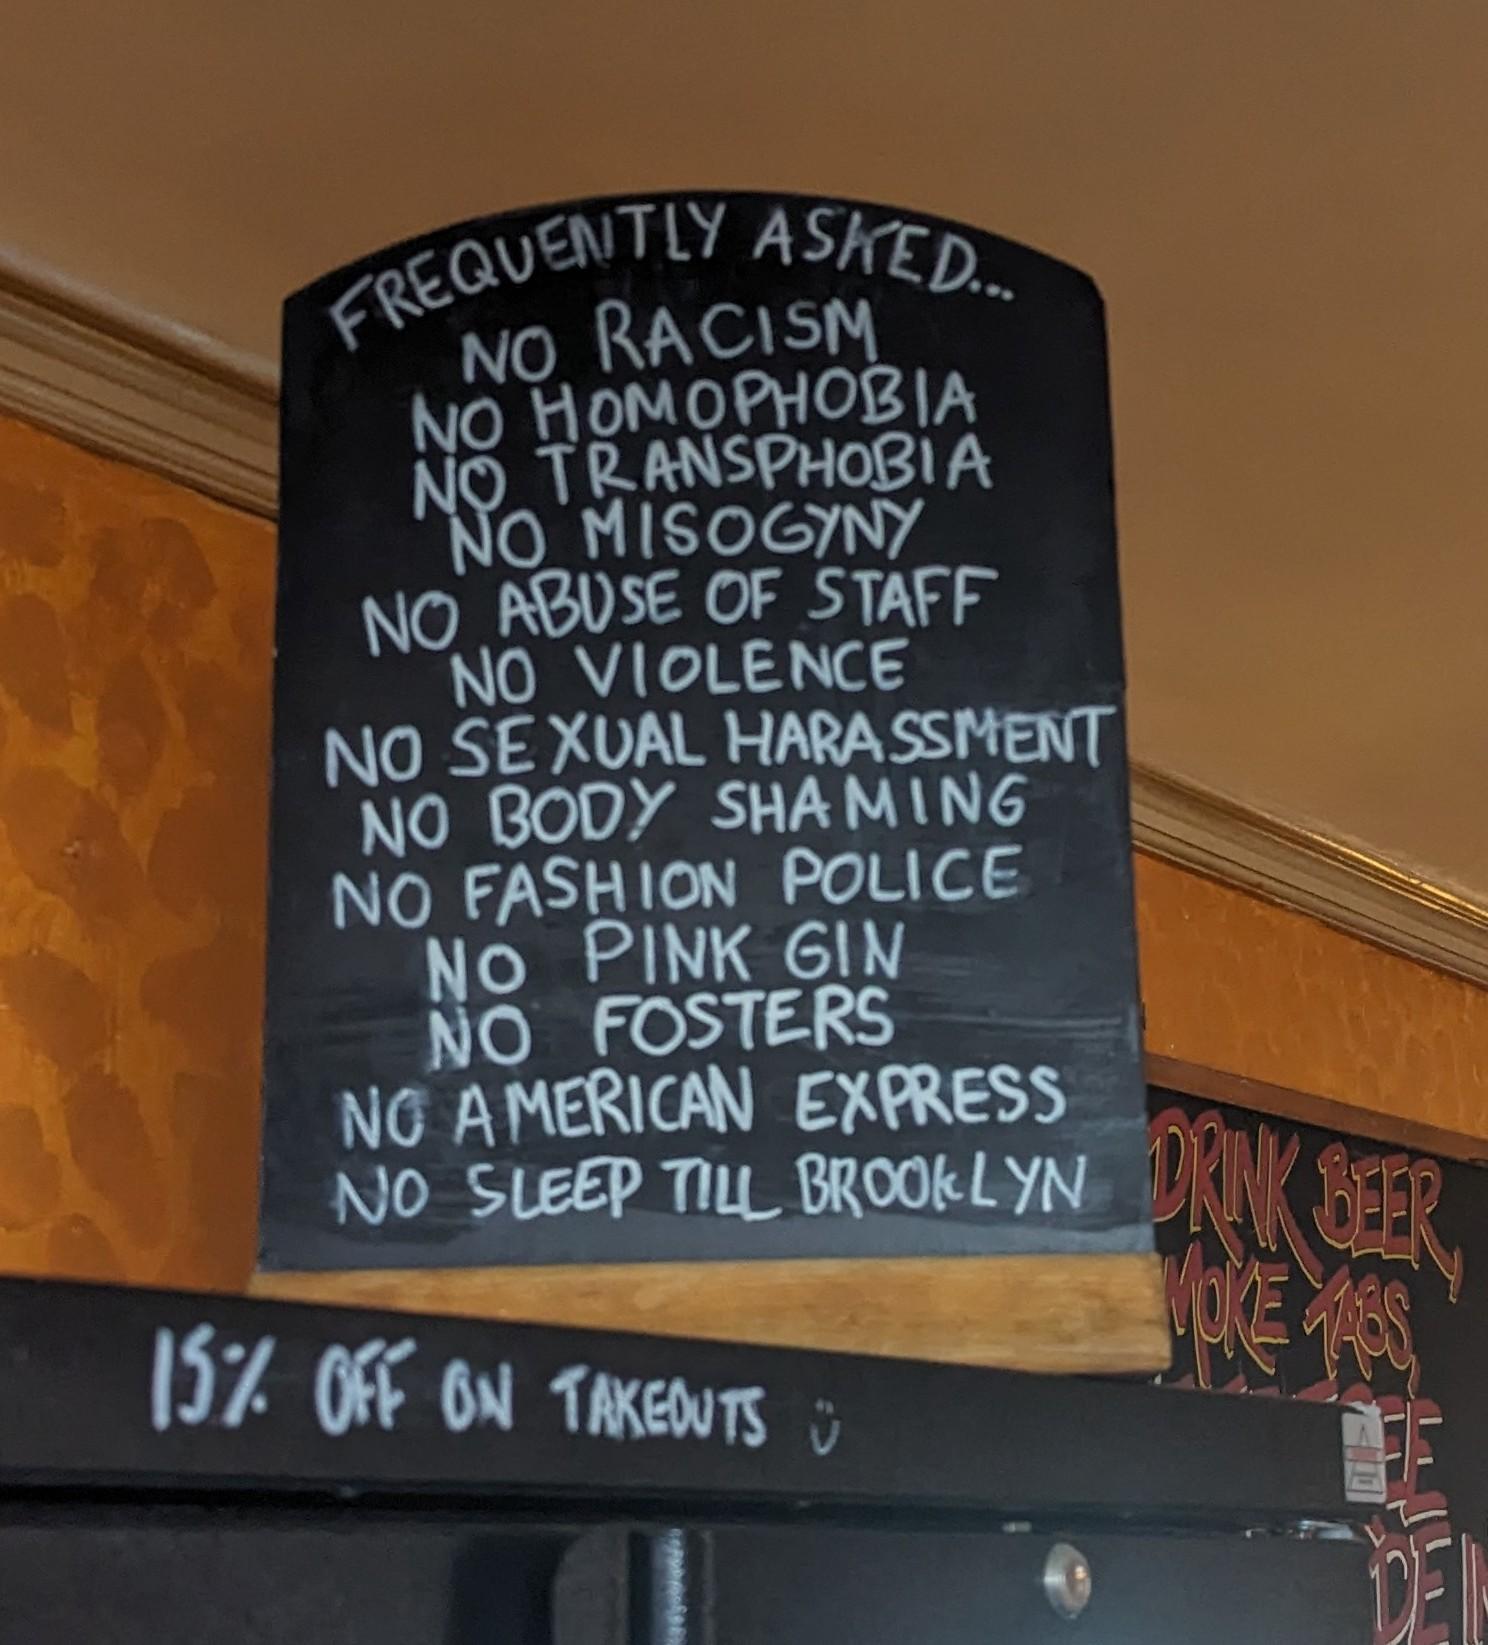 FREQUENTLY ASKED...
NO RACISM
NO HOMOPHOBIA
NO TRANSPHOBIA
NO MISOGYNY
NO ABUSE OF STAFF
NO VIOLENCE
NO SEXUAL HARASSMENT
NO BODY SHAMING
NO FASHION POLICE
NO PINK GIN
NO FOSTERS
NO AMERICAN EXPRESS
NO SLEEP TILL BROOKLYN
15% OFF ON TAKEOUTS
DRINK BEER,
MOKE TABS,